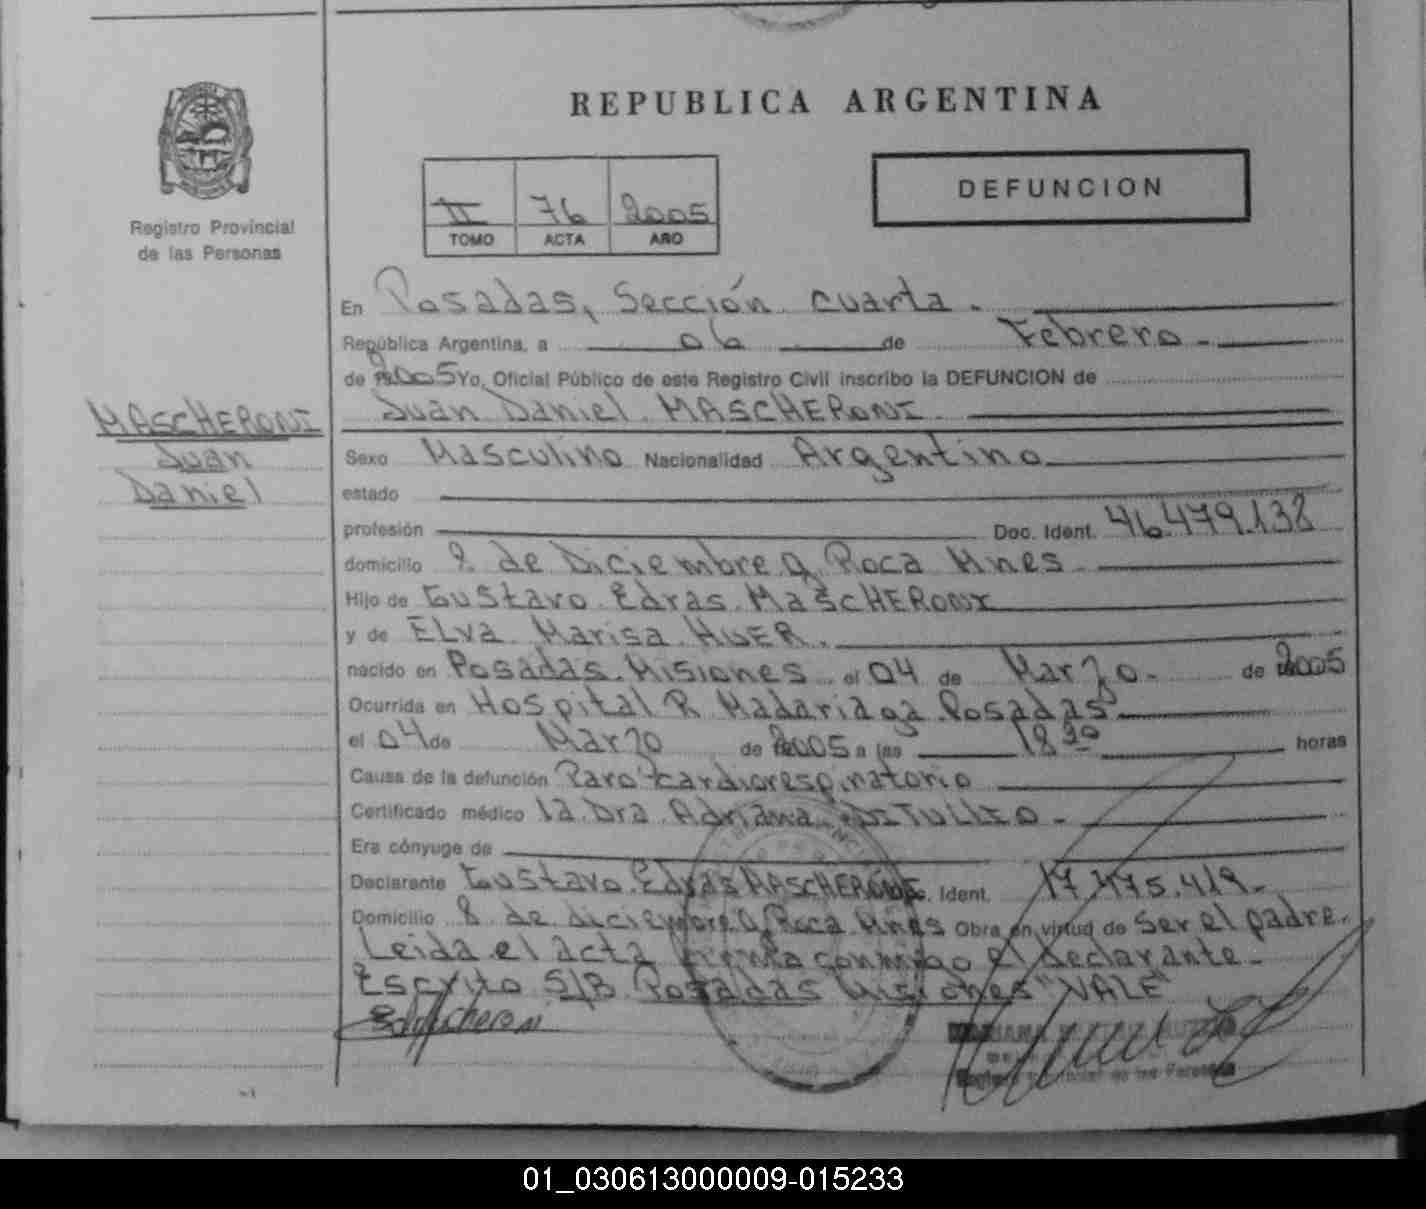 REPUBLICA ARGENTINA
DEFUNCION
II 76 2005
TOMO ACTA AÑO
Registro Provincial
de las Personas
En Posadas, Sección cuarta.
República Argentina, a 06 de Febrero
de 2005 Yo, Oficial Público de este Registro Civil inscribo la DEFUNCION de
Juan Daniel MASCHERONI.
MASCHERONI
Juan
Daniel
Sexo Masculino Nacionalidad Argentino
estado
profesión Doc. Ident. 46.479.138
domicilio 9 de Diciembre y Roca Mines
Hijo de Gustavo Edras MASCHERONI
y de ELVA Marisa
nacido en Posadas. Misiones el 04 de Marzo de 2005
Ocurrida en Hospital R. Madariaga Posadas
el 04 de Marzo de 2005 a las 18 30 horas
Causa de la defunción Paro cardiorespiratorio
Certificado médico la Dra
Era cónyuge de
Declarante Gustavo Edras MASCHERONI Ident.
Domicilio de Diciembre y Roca Mines Obra en virtud de Ser el padre.
Leida el acta firma conmigo el declarante
S/B Posadas Misiones VALE
01_030613000009-015233